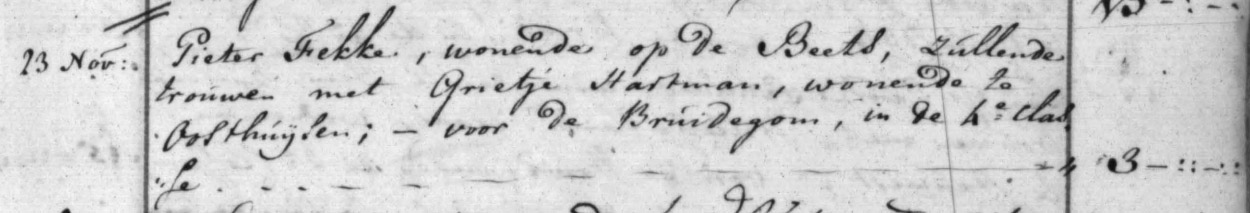 23 Nov: Pieter Fekke, wonende op de Beets, zullende
trouwen met Grietje Hartman, wonende te
Oosthuijsen; – voor de Bruidegom, in de 4e Clas
„se . - - - - - - - - - - - „ 3 –:: –::